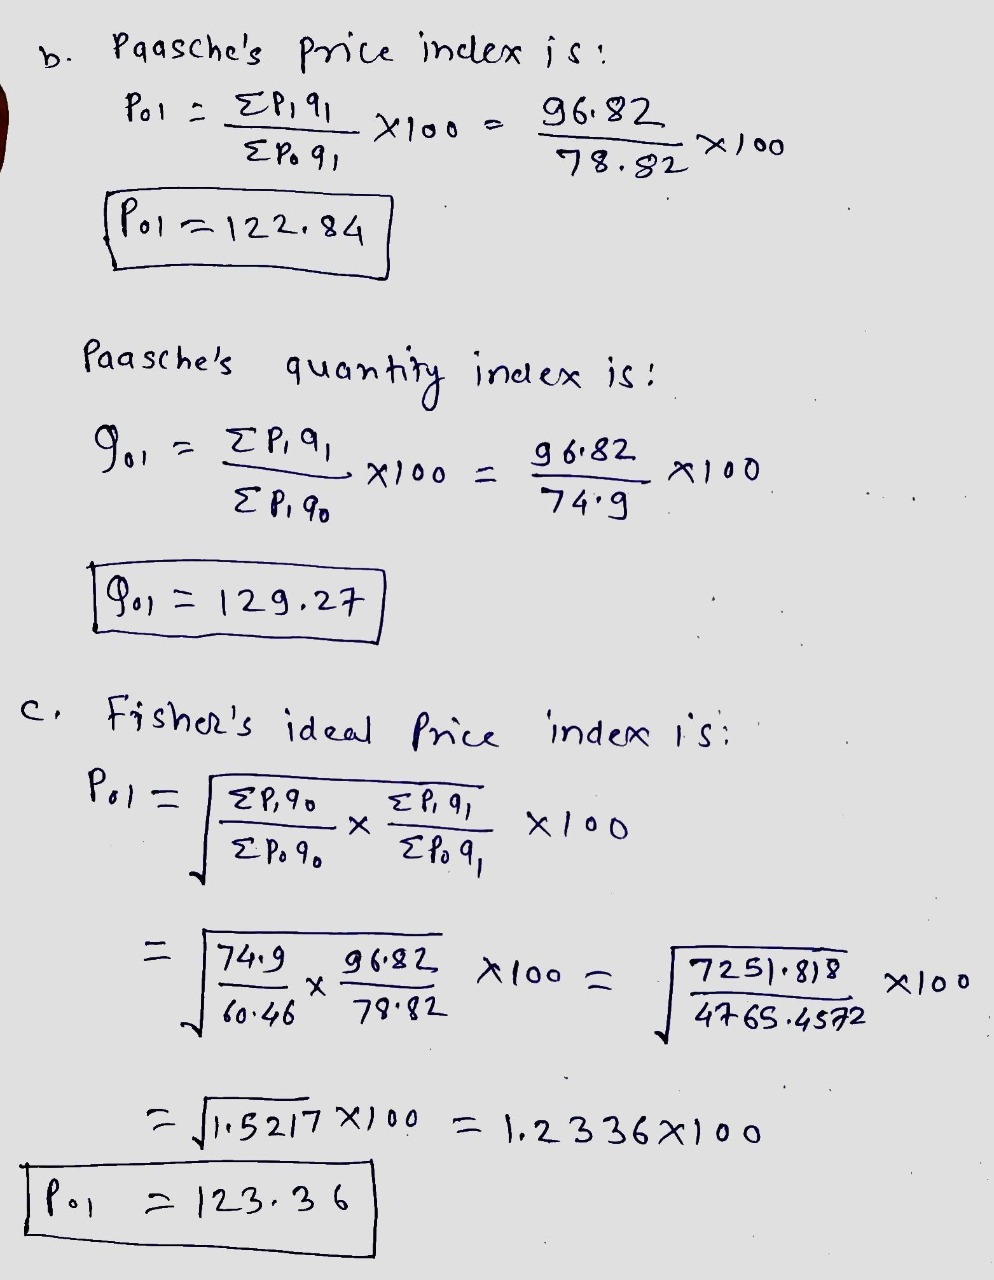 b. Paasche's price index is:
P₀₁ = ΣP₁q₁ / ΣP₀q₁ ×100 = 96.82 / 78.82 ×100
P₀₁ = 122.84
Paasche's quantity index is:
q₀₁ = ΣP₁q₁ / ΣP₁q₀ ×100 = 96.82 / 74.9 ×100
q₀₁ = 129.27
c. Fisher's ideal Price index is:
P₀₁ = √(ΣP₁q₀ / ΣP₀q₀ × ΣP₁q₁ / ΣP₀q₁) ×100
= √(74.9 / 60.46 × 96.82 / 78.82) ×100 = √(7251.818 / 4765.4572) ×100
= √1.5217 ×100 = 1.2336×100
P₀₁ = 123.36